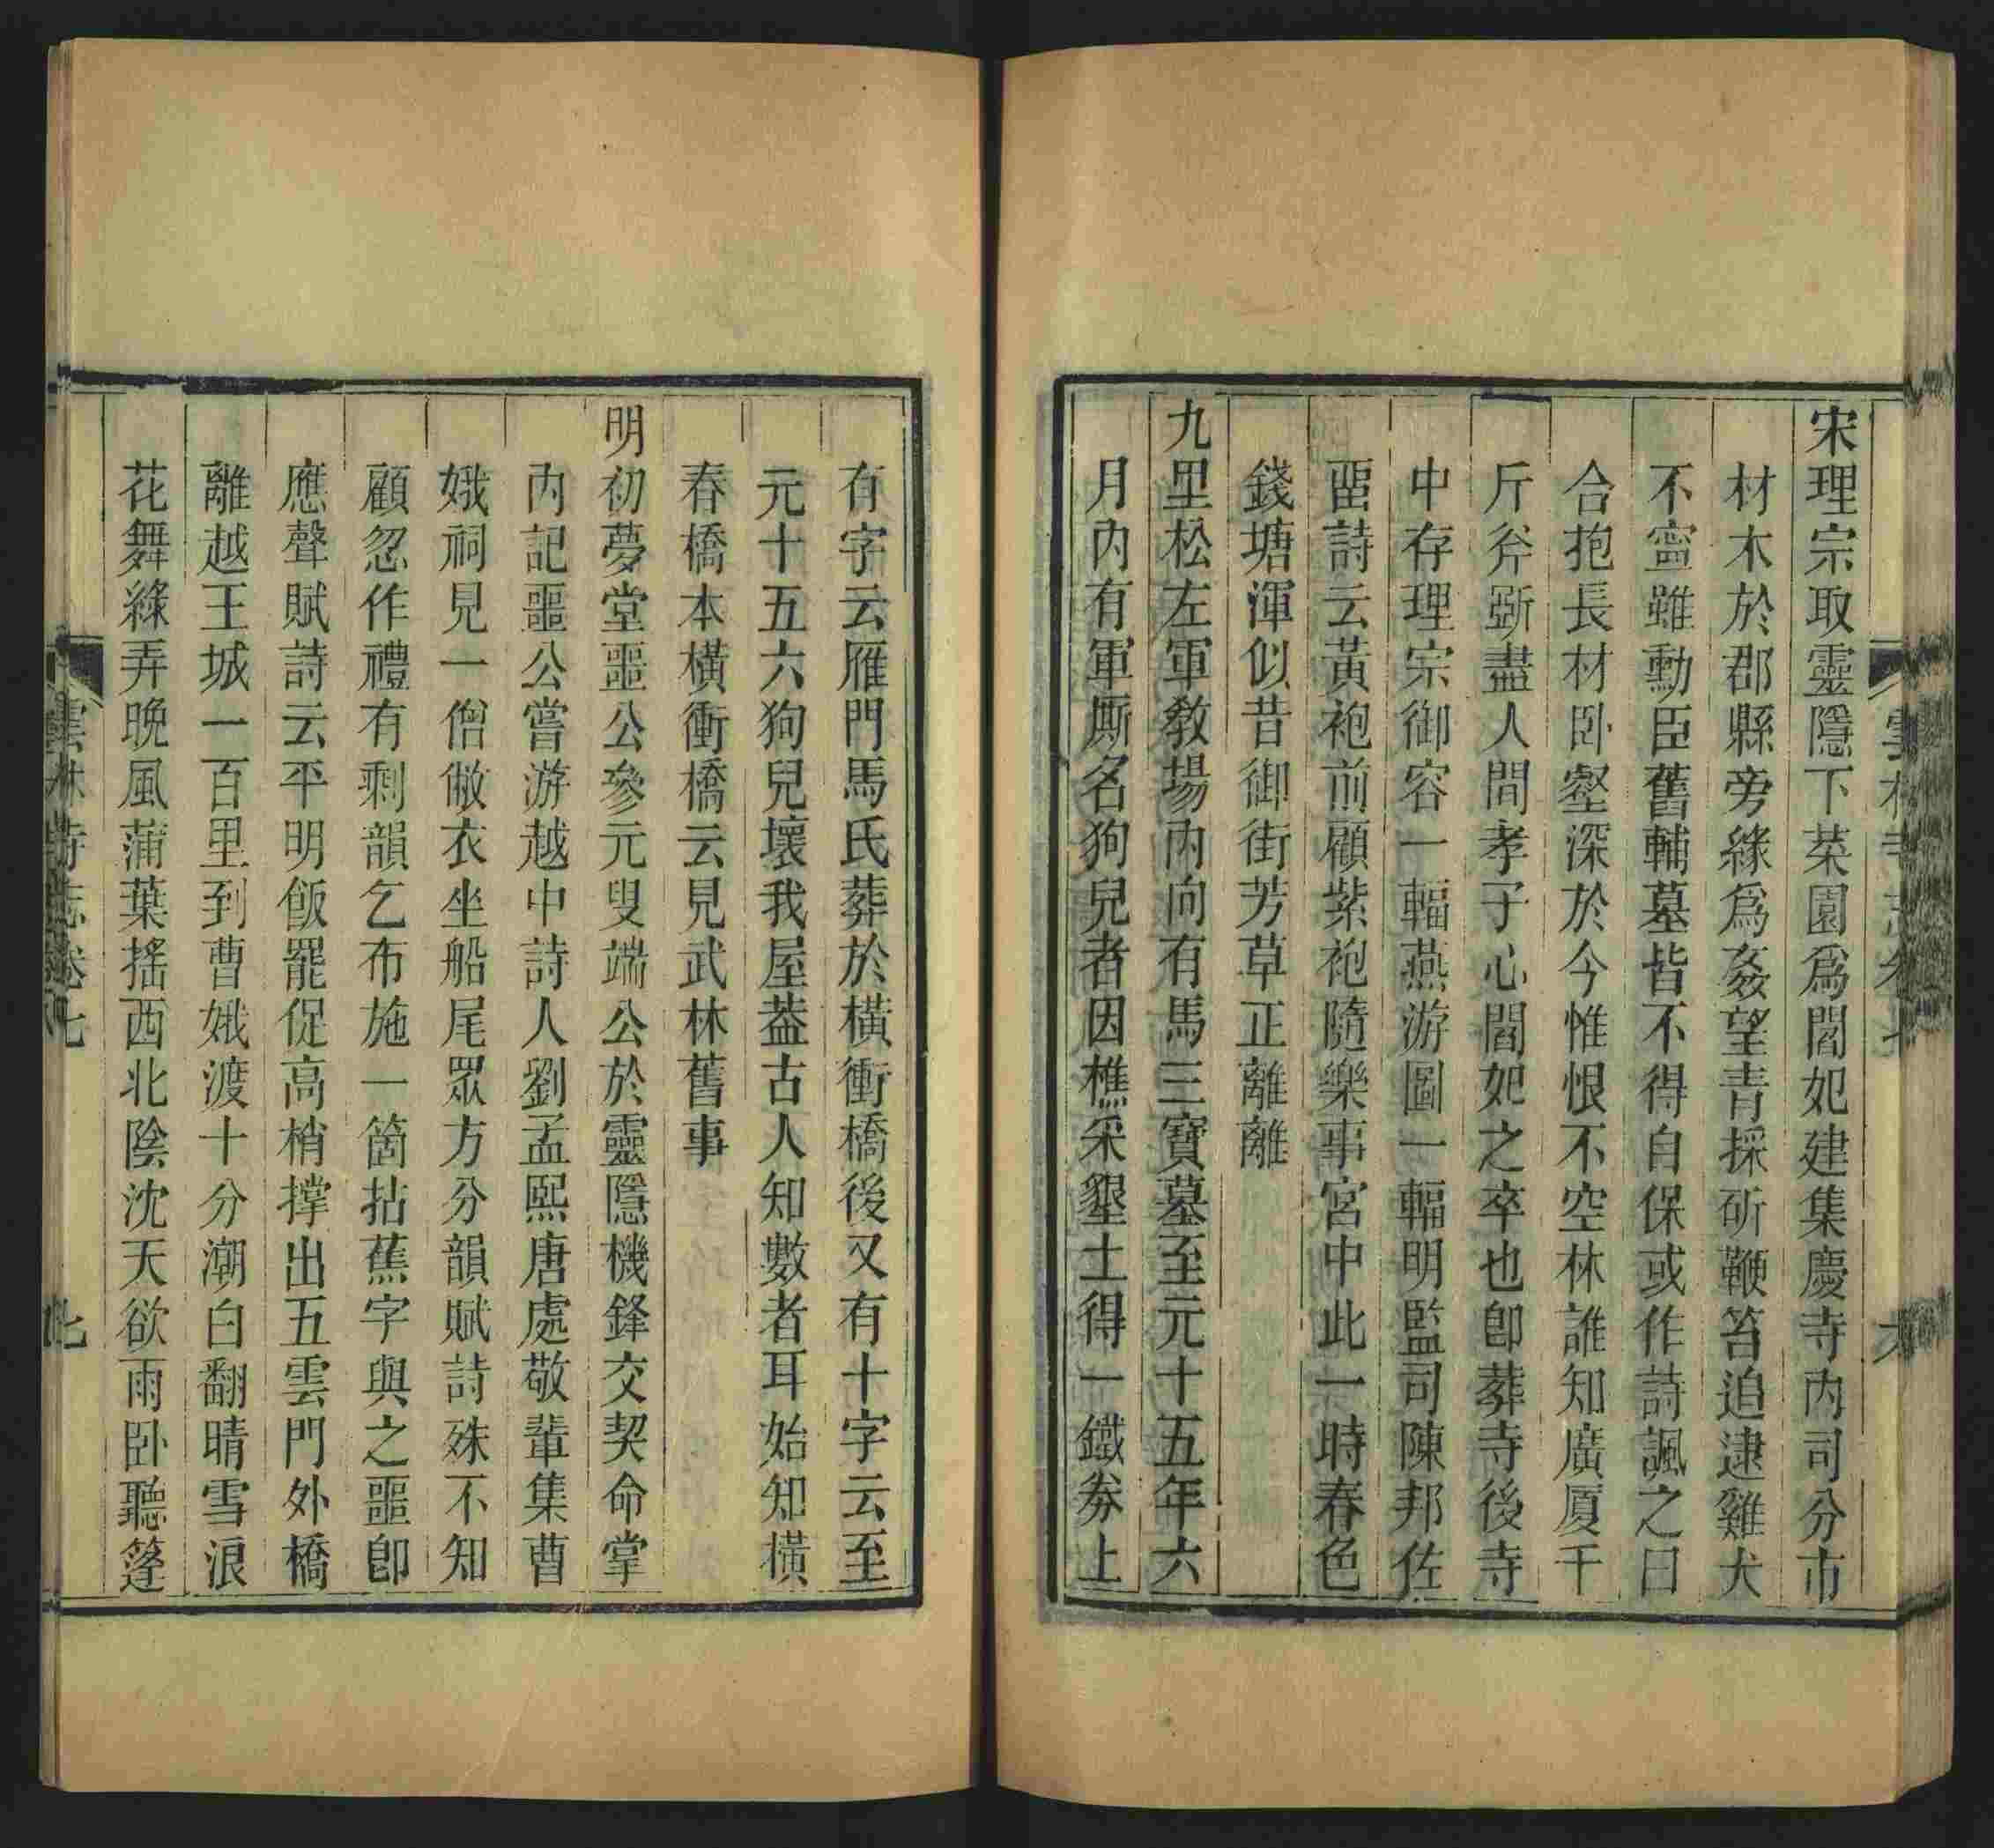 宋理宗取靈隱下菜園爲閻妃建集慶寺內司分市
材木於郡縣旁緣爲姦望青採斫鞭笞追逮雞犬
不寍雖勳臣舊輔墓皆不得自保或作詩諷之曰
合抱長材卧壑深於今惟恨不空林誰知廣厦千
斤斧斵盡人間孝子心閻妃之卒也卽葬寺後寺
中存理宗御容一輻燕游圖一輻明監司陳邦佐
畱詩云黃袍前顧紫袍隨樂事宮中此一時春色
錢塘渾似昔御街芳草正離離
九里松左軍敎場內向有馬三寶墓至元十五年六
月內有軍厮名狗兒者因樵采墾土得一鐵券上
有字云雁門馬氏葬於橫衝橋後又有十字云至
元十五六狗兒壞我屋葢古人知數者耳始知橫
春橋本橫衝橋云見武林舊事
明初夢堂噩公參元叟端公於靈隱機鋒交契命掌
內記噩公嘗游越中詩人劉孟熙唐處敬輩集曹
娥祠見一僧敝衣坐船尾眾方分韻賦詩殊不知
顧忽作禮有剩韻乞布施一箇拈蕉字與之噩卽
應聲賦詩云平明飯罷促高梢撑出五雲門外橋
離越王城一百里到曹娥渡十分潮白翻晴雪浪
花舞綠弄晚風蒲葉搖西北陰沈天欲雨卧聽篷
雲林寺志卷七
七